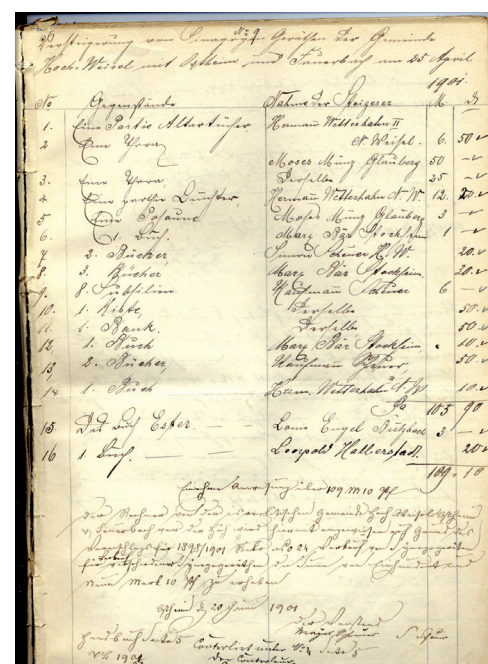 No 9
Versteigerung von Sinagogen Geräthen der Gemeinde
Hoch-Weisel mit Ostheim und Fauerbach am 25 April
1901.
No Gegenstände Nahme der Steigerer M. d
1. Eine Partie Altartücher, Hermann Wetterhahn II
N. Weisel. 6. 50
2 Eine Thora Moses Münz Glauberg 50 —
3. Eine Thora Derselbe 25 —
4 Eine Leuchter, Hermann Wetterhahn N. W. 12. 20.
5 Eine Posaune Moses Münz Glauberg 3 —
6. 1. Buch, Marx Bär Stockheim 1 —
7 2. Bücher, Simon Scheuer H. W. 20.
8. 3. Bücher Marx Bär Stockheim. 20.
9. 8. Subsilien. Kaufmann Scheuer 6 —
10. 1. Kiste, Derselbe 50.
11. 1. Bank. Derselbe 50.
12, 1. Buch Marx Bär Stockheim 10.
13, 2. Bücher, Kaufmann Scheuer 50.
14 1. Buch Herm. Wetterhahn N. W 10.
105 90
15 Das Buch Esther. — Louis Engel Butzbach 3 —
16 1 Buch. — — Leopold Halberstadt. 20
109 - 10
Einnahme Anweisung über 109 M 10 Pf
Der Rechner der israelitischen Gemeinde Hoch Weisel Ostheim
u. Fauerbach v. d. Höh wird hiermit angewiesen auf Grund des
für 1898/1901 24
von Einhundert und
neun Mark 10 Pf zu erheben
Ostheim d. 20 1901
Der Vorstand
Mayer Scheuer S. Scheuer
Handbuch Seite 5 Controlirt unter No Seite 5
1901 Der Controleur